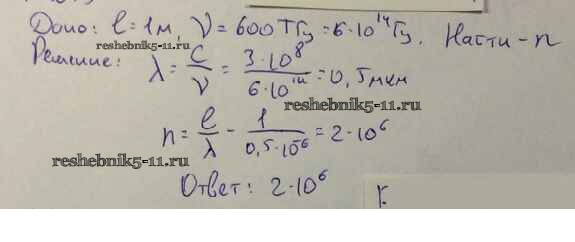 Дано: l = 1м, ν = 600 ТГц = 6·10¹⁴ Гц. Найти - n
reshebnik5-11.ru
Решение: λ = c/ν = 3·10⁸/6·10¹⁴ = 0,5 мкм
reshebnik5-11.ru
n = l/λ - 1/0,5·10⁻⁶ = 2·10⁶
reshebnik5-11.ru
Ответ: 2·10⁶